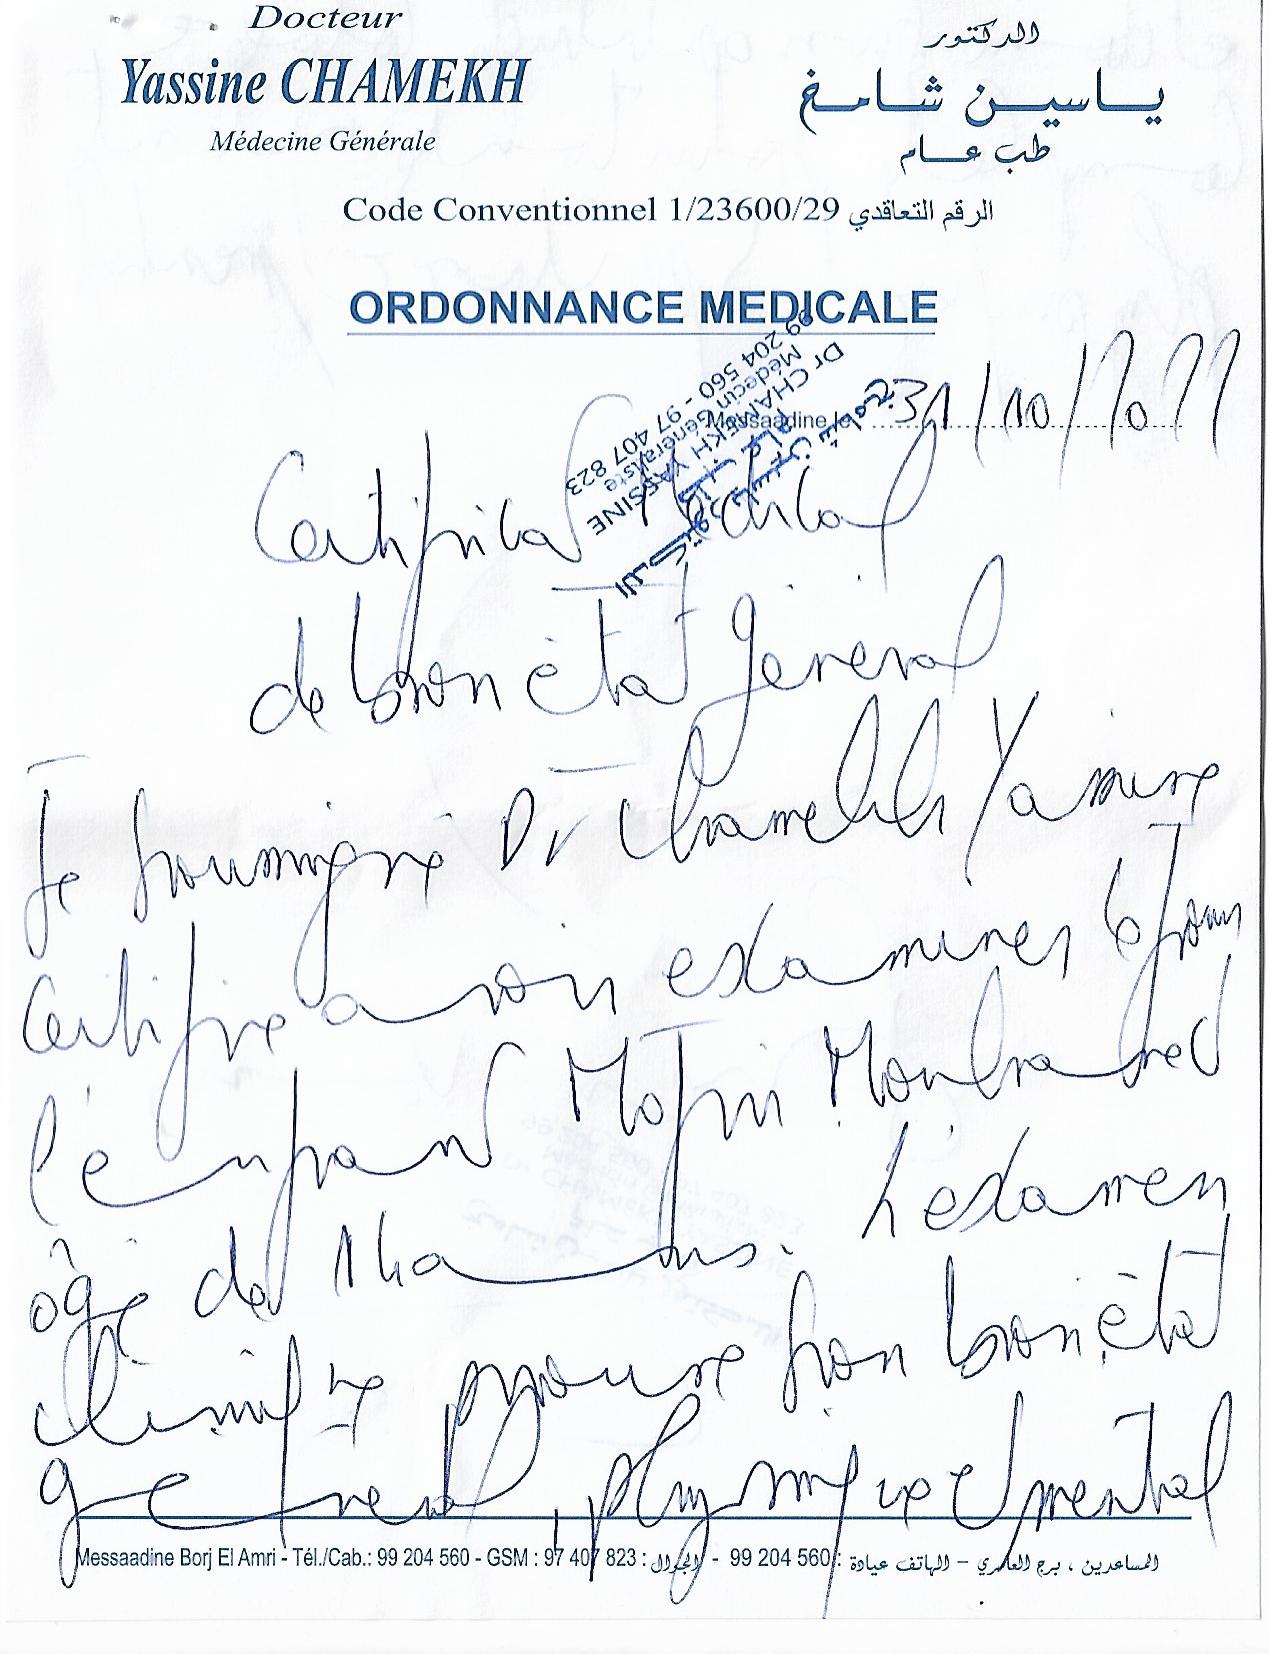 Docteur
Yassine CHAMEKH
Médecine Générale
الدكتور
ياسين شامخ
طب عام
Code Conventionnel 1/23600/29 الرقم التعاقدي
ORDONNANCE MEDICALE
Messaadine le 31/10/2022
الدكتور ياسين شامخ
طب عام
Dr CHAMEKH YASSINE
Médecin Généraliste
99 204 560 - 97 407 823
Certificat Médical
de bon état général
Je soussigné Dr Chamekh Yassine
Certifie avoir examiner ce jour
l'enfant Mouhamed
âgé de ans. L'examen
clinique prouve son bon état
général, physique et mental
Messaadine Borj El Amri - Tél./Cab.: 99 204 560 - GSM : 97 407 823 : الجوال - 99 204 560 : المساعدين ، برج العامري – الهاتف عيادة